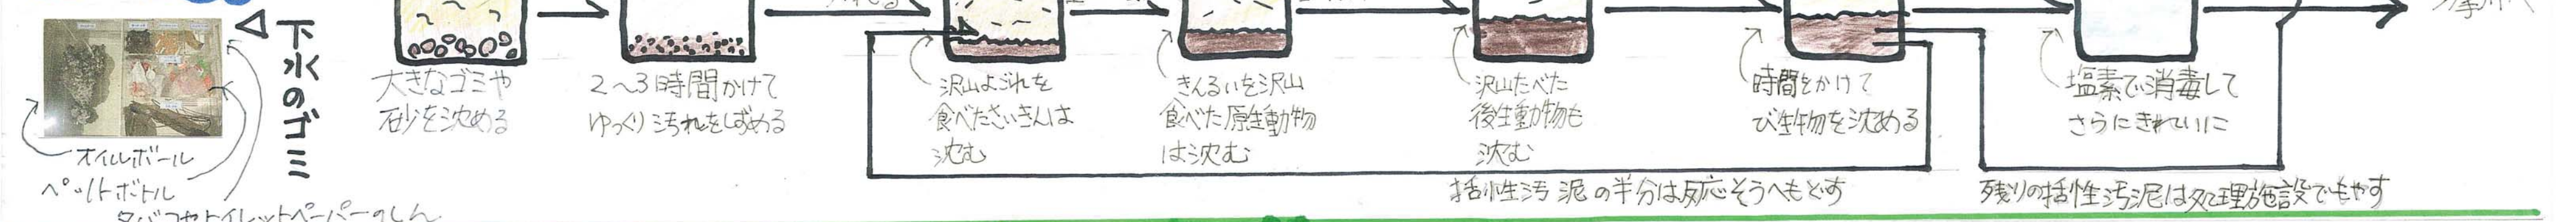 下水のゴミ
オイルボール
ペットボトル
タバコやトイレットペーパーのしん
大きなゴミや
砂を沈める
2〜3時間かけて
ゆっくり汚れをしずめる
沢山よごれを
食べたさいきんは
沈む
きんるいを沢山
食べた原生動物
は沈む
沢山たべた
後生動物も
沈む
時間をかけて
び生物を沈める
塩素で消毒して
さらにきれいに
活性汚泥の半分は反応そうへもどす
残りの活性汚泥は処理施設でもやす